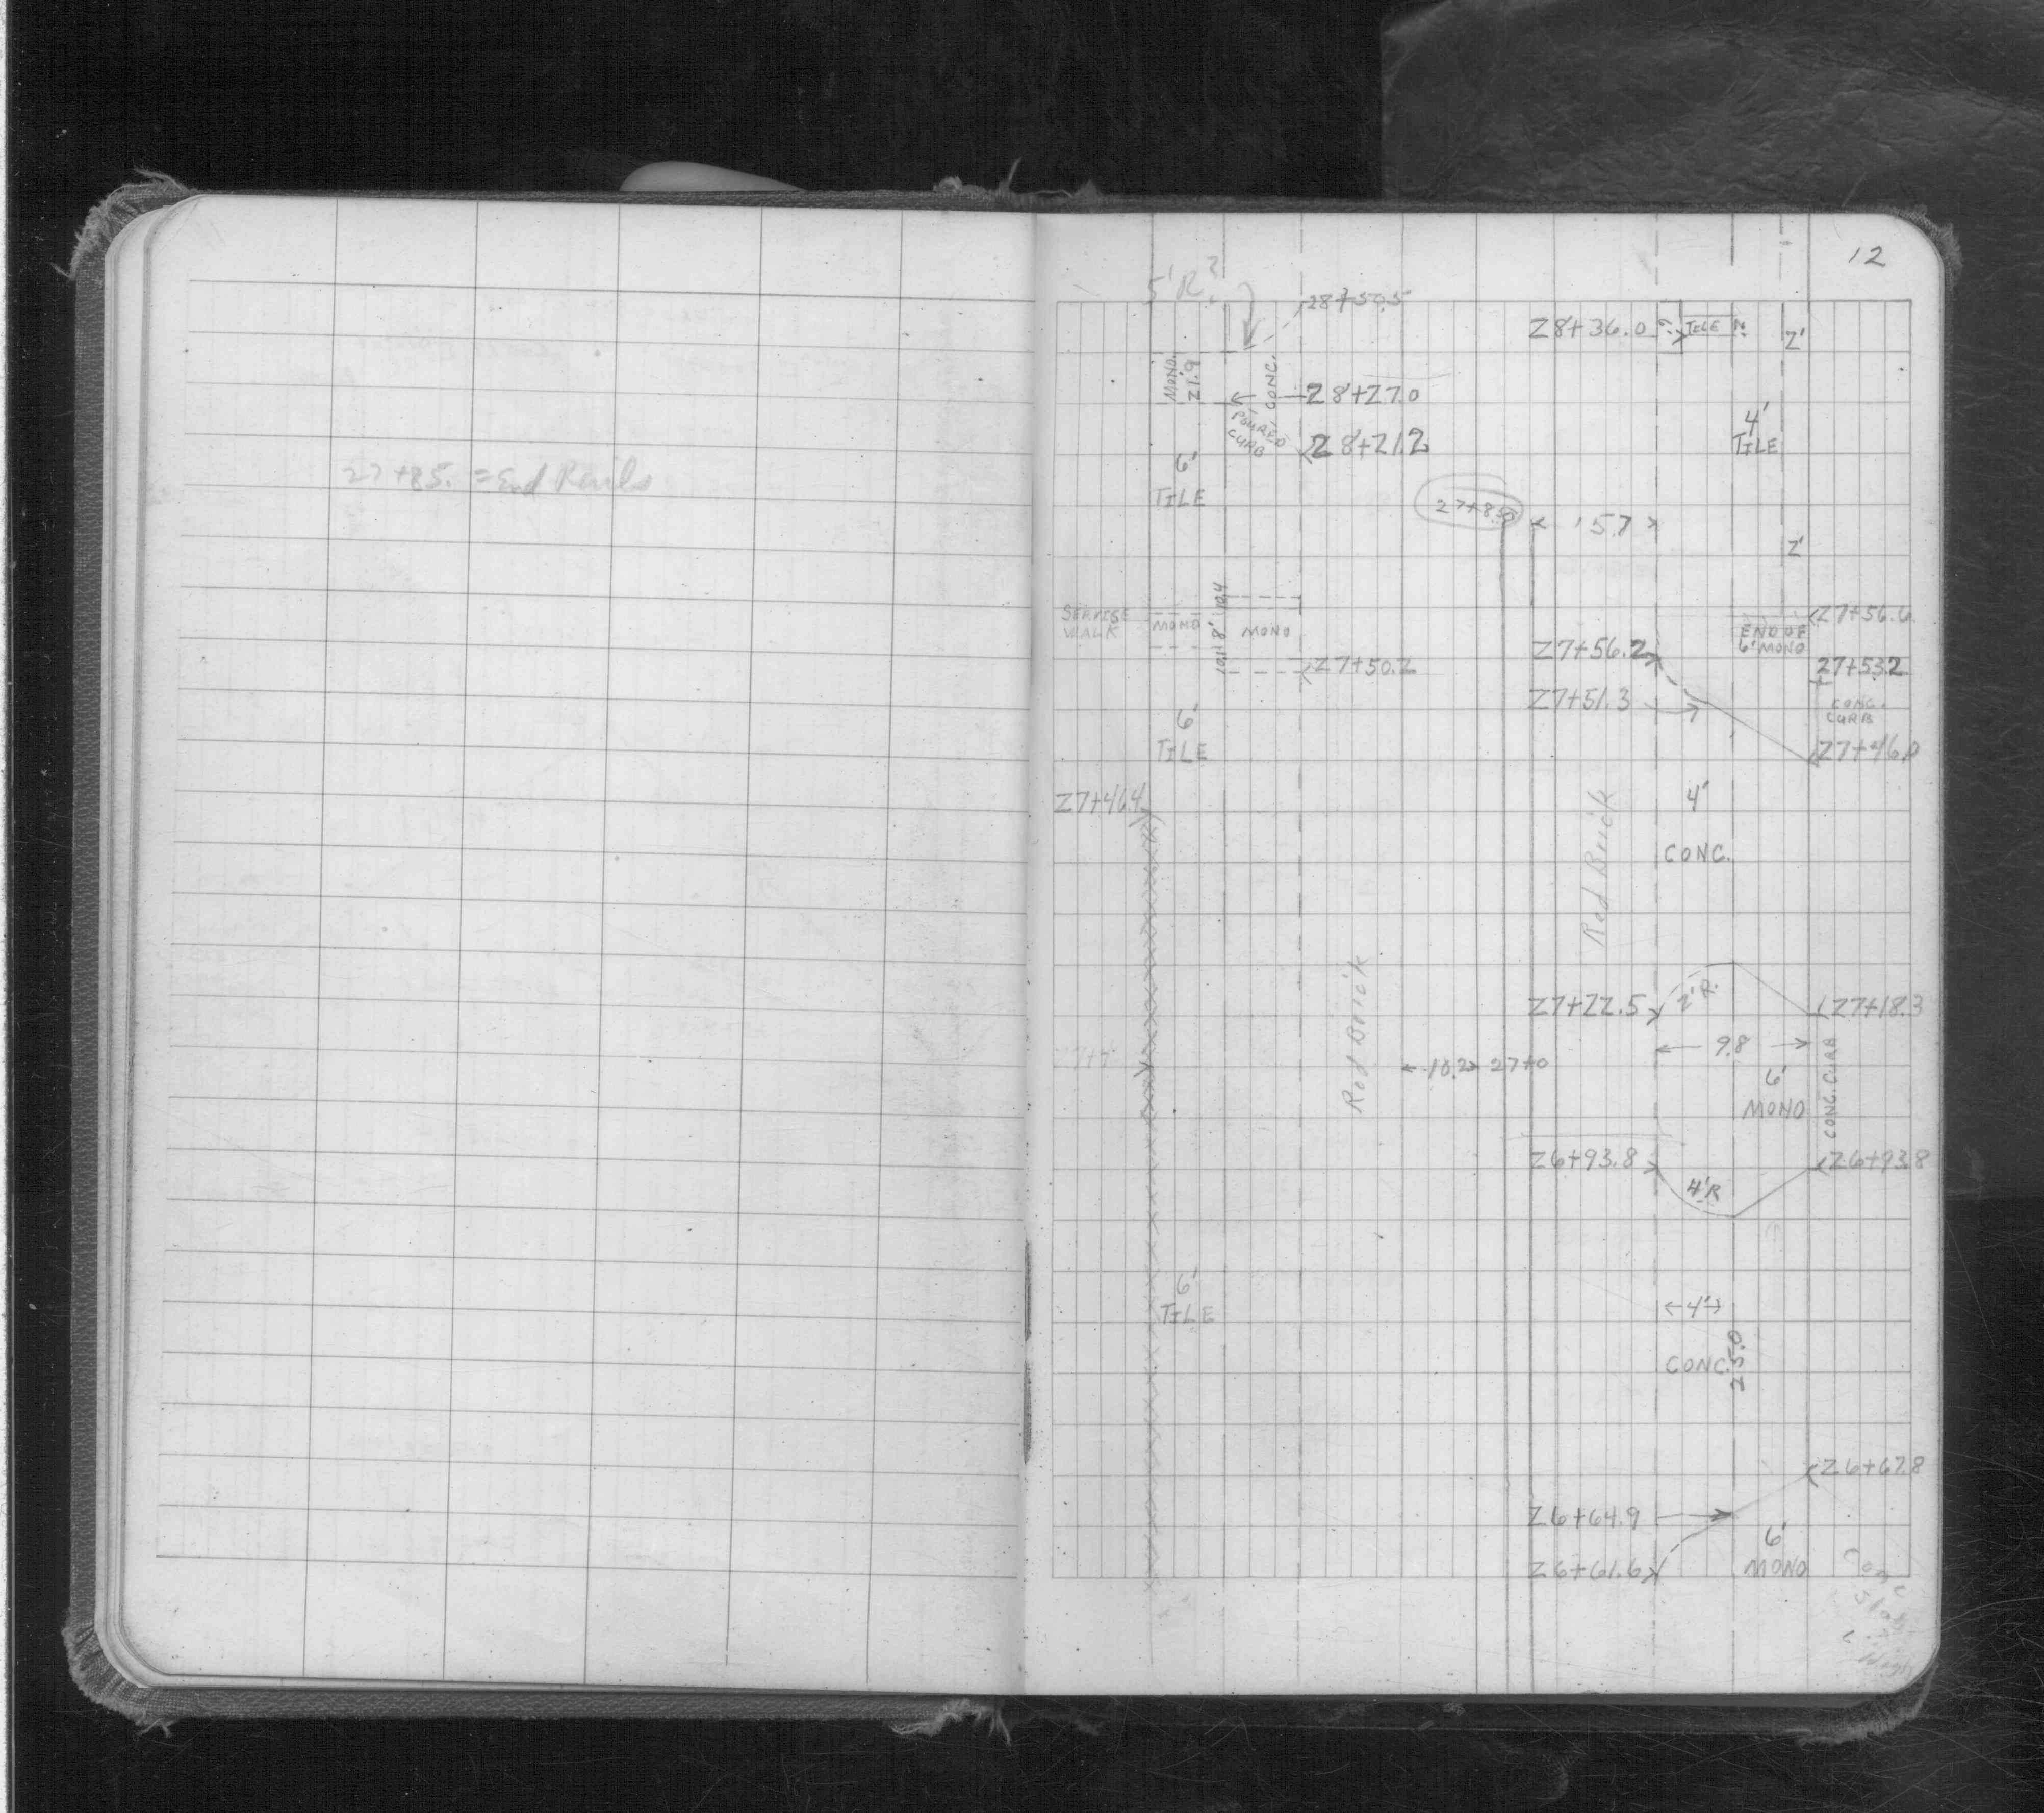 27+85. = End Rails
12
5'R?
28+50.5
Z8+36.0
TILE
2'
MONO.
21.9
CONC.
Z8+27.0
POURED
CURB
Z8+21.2
4'
TILE
6'
TILE
27+85
15.7
2'
SERVICE
WALK
MONO
8'
10.4
MONO
Z7+50.2
Z7+56.2
Z7+51.3
Z7+56.6
END OF
6' MONO
Z7+53.2
CONC.
CURB
Z7+46.0
6'
TILE
Z7+46.4
Red Brick
4'
CONC.
Red Brick
Z7+22.5
2'R.
Z7+18.3
9.8
10.2
27+0
6'
MONO
CONC. CURB
Z6+93.8
4'R
Z6+93.8
6'
TILE
4'
CONC.
25.0
Z6+67.8
Z6+64.9
6'
MONO
Z6+61.6
Conc